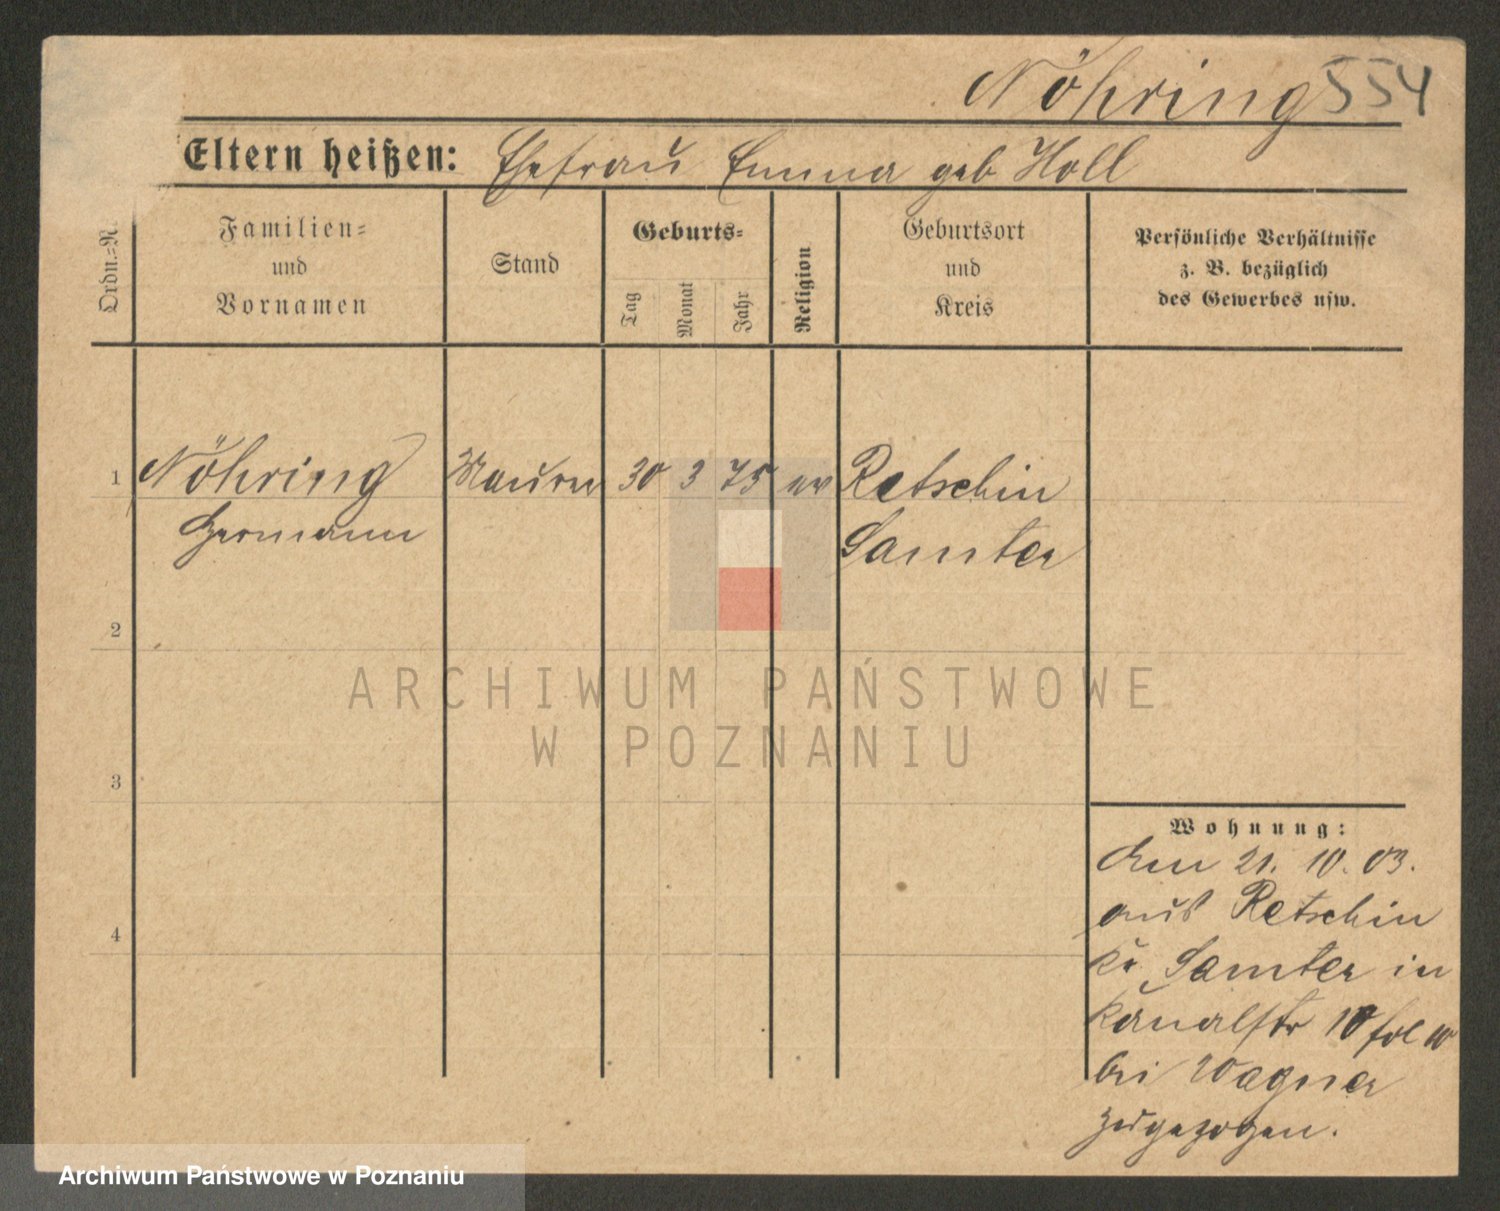 Nöhring 554
Eltern heißen: Ehefrau Emma geb Holl
Ordn.=N.
Familien=
und
Vornamen
Stand
Geburts=
Tag
Monat
Jahr
Religion
Geburtsort
und
Kreis
Persönliche Verhältnisse
z. B. bezüglich
des Gewerbes usw.
1 Nöhring Maurer 30 3 75 ev Retschin
Hermann Samter
2
ARCHIWUM PAŃSTWOWE
W POZNANIU
3
Wohnung:
den 21. 10. 03.
aus Retschin
4
Kr. Samter in
Kanalstr 10 fol 10
bei Wagner
zugezogen.
Archiwum Państwowe w Poznaniu